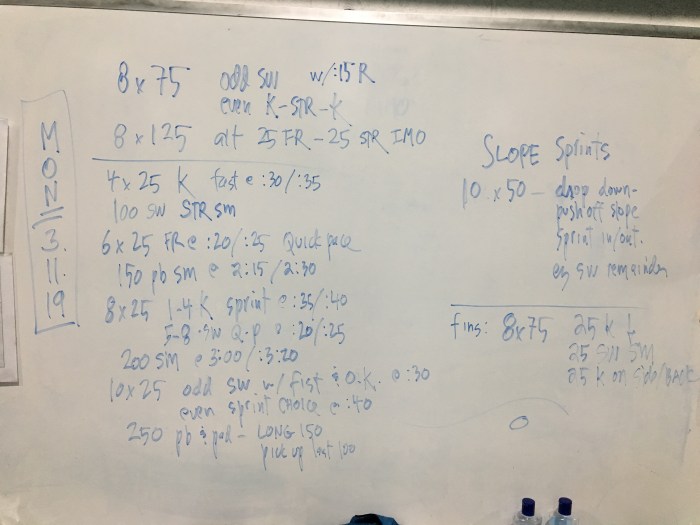 MON 3.11.19
8 x 75 odd sw w/:15 R
even K-STR-K
8 x 125 alt 25 FR - 25 STR IMO
4 x 25 K fast @ :30/:35
100 sw STR sm
6 x 25 FR @ :20/:25 Quick pace
150 pb sm @ 2:15/2:30
8x25 1-4 K sprint @ :35/:40
5-8 sw Q.P @ :20/:25
200 sm @ 3:00/:3:20
10x25 odd sw w/ fist & O.K. @ :30
even sprint CHOICE @ :40
250 pb & pad - LONG 150
pick up last 100
SLOPE Sprints
10 x 50 - drop down-
push off slope
sprint in/out.
ez sw remainder
fins: 8x75 25 K f
25 sw sm
25 K on side/BACK